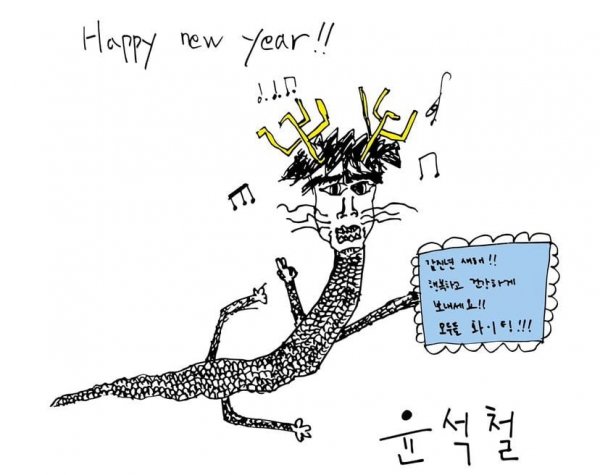 Happy new year!!
갑진년 새해!!
행복하고 건강하게
보내세요!!
모두들 화이팅!!!
윤석철